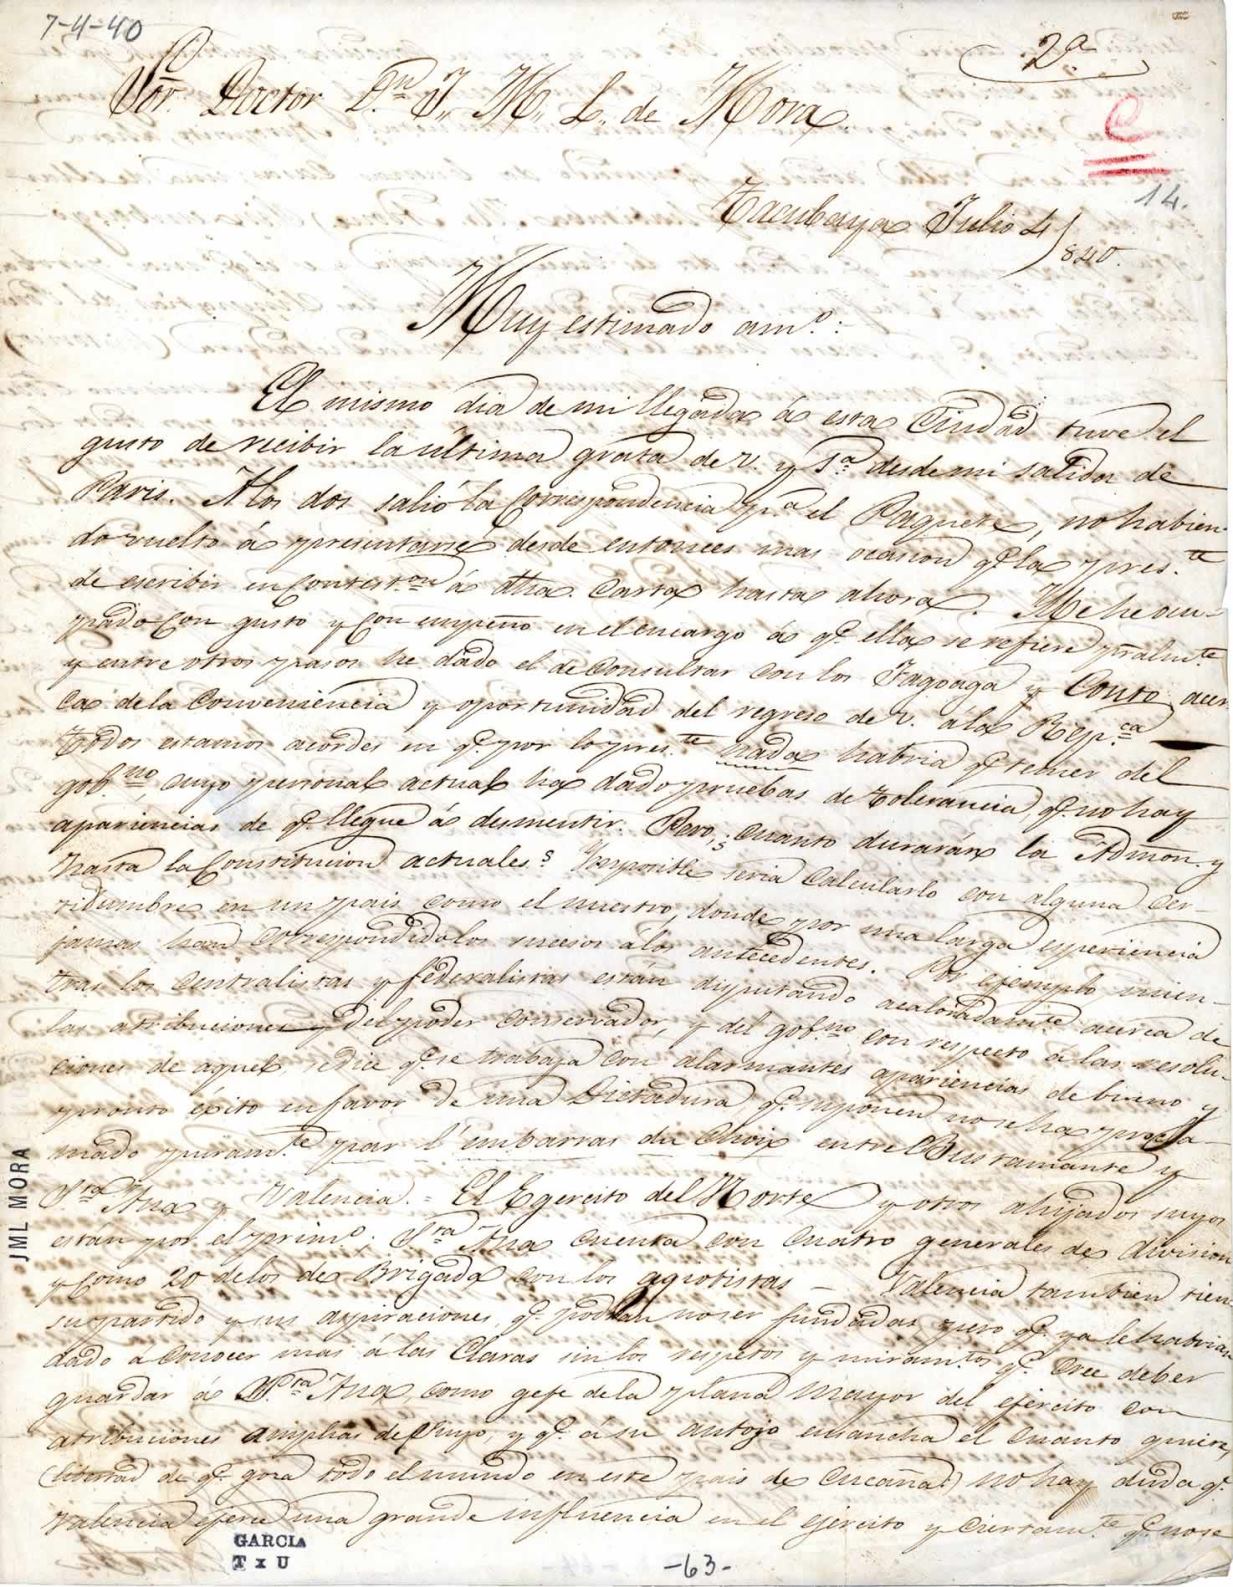 7-4-40
2ª
Sōr. Doctor Dn. J. M. L. de Mora.
C
14.
Tacubaya Julio 4/840.
Muy estimado amº:
El mismo dia de mi llegada á esta Ciudad tuve el
gusto de recibir la última grata de V. y 1ª desde mi salida de
Paris. A los dos salió la Correspondencia pª el Paquete, no habien-
do vuelto á presentarse desde entonces mas ocasion q.e la pres.te
de escribir en Contest.on á dha Carta hasta ahora. Me he ocu-
pado con gusto y con empeño en el encargo á q.e ella se refiere pralm.te
y entre otros pasos he dado el de consultar con los Fagoaga y Couto acer
ca de la Conveniencia y oportunidad del regreso de V. á la Rep.ca
Todos estamos acordes en q.e por lo pres.te nada habria q.e temer del
gob.no cuyo personal actual ha dado pruebas de tolerancia, q.e no hay
apariencias de q.e llegue á desmentir. Pero, ¿cuanto durarán la Admon. y
hasta la Constitucion actuales? Imposible seria calcularlo con alguna cer-
tidumbre en un pais como el nuestro, donde por una larga experiencia
jamas han correspondido los sucesos á los antecedentes. Por ejemplo, mien-
tras los centralistas y federalistas están disputando acaloradam.te acerca de
las atribuciones del poder conservador, y del gob.no con respecto á las resolu-
ciones de aquel, se dice q.e se trabaja con alarmantes apariencias de bueno y
pronto exito en favor de una Dictadura q.e suponen no se ha procla-
mado puram.te par l'embarras du choix entre Bustamante y
Sta Ana y Valencia. = El Egercito del Norte y otros ahijados suyos
están por el prim.o Sta Ana cuenta con cuatro generales de division
y como 20 de los de Brigada con los agiotistas — Valencia tambien tien
su partido y sus aspiraciones, q.e podrán no ser fundadas pero q.e ya le habrian
dado á conocer mas á las Claras sin los respetos y miram.tos q.e cree deber
guardar á Sta Ana, como gefe de la plana mayor del ejército con
atribuciones amplias de suyo, y q.e á su antojo ensancha el cuanto quiere,
(libertad de q.e goza todo el mundo en este pais de Cucaña) no hay duda q.e
Valencia ejerce una grande influencia en el ejército y ciertam.te q.e no se
JML MORA
GARCIA
T x U
-63-